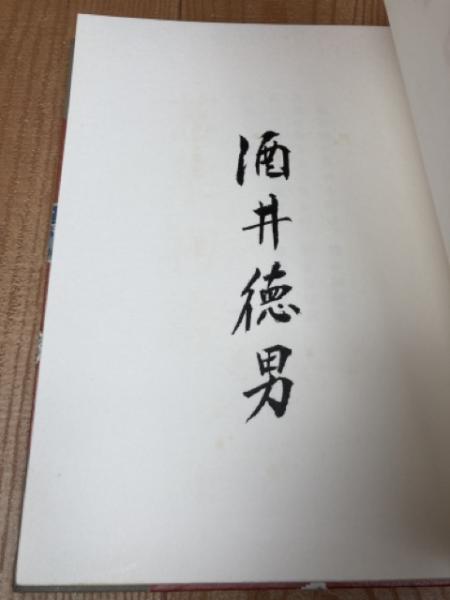 酒井徳男